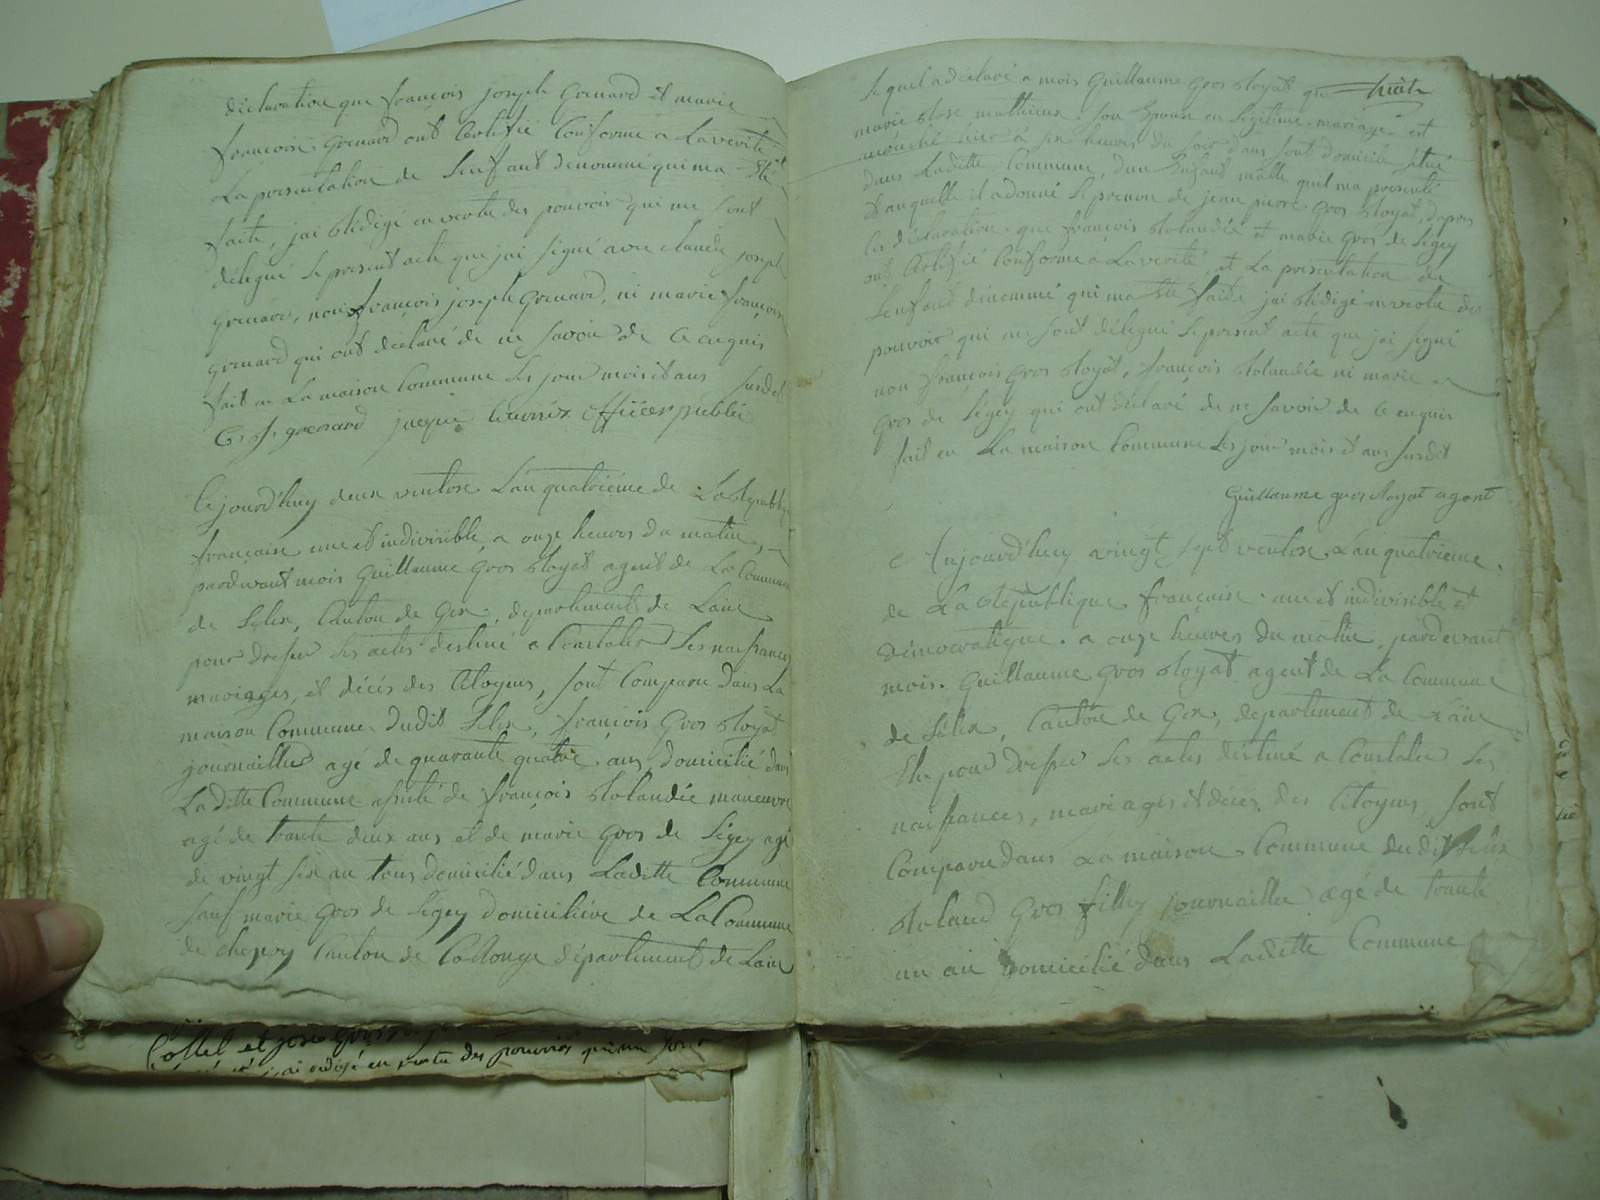 déclaration que françois joseph Grenard et marie
françoise Grenard ont Certifié Conforme a Laverité
La presentation de Lenfant denommé qui ma été
faite, jai rédigé en vertu des pouvoir qui me sont
délegué le present acte que jai signé avec claude joseph
grenard, non françois joseph Grenard, ni marie françoise
grenard qui ont déclaré de ne savoir de Ce enquis
fait en La maison Commune Les jour mois et ans susdit
C. J. grenard jacque officier public
Cejourd'huy deux ventose Lan quatrième de La Republique
française une et indivisible, a onze heures du matin,
pardevant mois Guillaume Gros Royat agent de La Commune
de Lelex, Canton de Gex, departement de Lain
pour dresser les actes destiné a Constater Les naissances
mariages, et décés des Citoyens, sont Comparu dans La
maison Commune dudit Lélex, françois Gros Royat
journaillier agé de quarante quatre ans domicilié dans
Laditte Commune assisté de françois Rolandée maneuvre
agé de trante deux ans et de marie gros de Légey agé
de vingt six an tous domicilié dans Laditte Commune
sauf marie gros de Légey domicilière de La Commune
de chezery Canton de Collonge département de Lain
Lequel a déclaré a mois Guillaume Gros Royat que
marie Rose mathieux son Epouse en Légitime mariage est
acouché hier a six heures du soir dans sont domicile situé
dans Laditte Commune, dun Enfant mâlle quil ma presenté
et auquelle il a donné le prenom de jean pierre gros Royat, dapres
les déclaration que françois Rolandée et marie gros de Légey
ont Certifié Conforme a Laverité, et La presentation de
Lenfant dénommé qui ma été faite jai rédigé en vertu des
pouvoir qui me sont délegué le present acte que jai signé
non françois Gros Royat, françois Rolandée ni marie
gros de Légey qui ont déclaré de ne savoir de Ce enquis
fait en La maison Commune Les jour mois et ans susdit
Guillaume gros Royat agent
Aujourd'huy vingt sept ventose Lan quatrieme
de La République française une et indivisible et
démocratique. a onze heures du matin, pardevant
mois. Guillaume Gros Royat agent de La Commune
de Lélex, Canton de Gex, département de Lain
Elu pour dresser les actes destiné a Constater Les
naissances, mariages et décés des Citoyens, sont
Comparu dans La maison Commune dudit Lélex
Roland Gros fillez journaillier agé de trante
un an domicilié dans Laditte Commune
Collet et
jai redigé en vertu des pouvoirs qui me sont